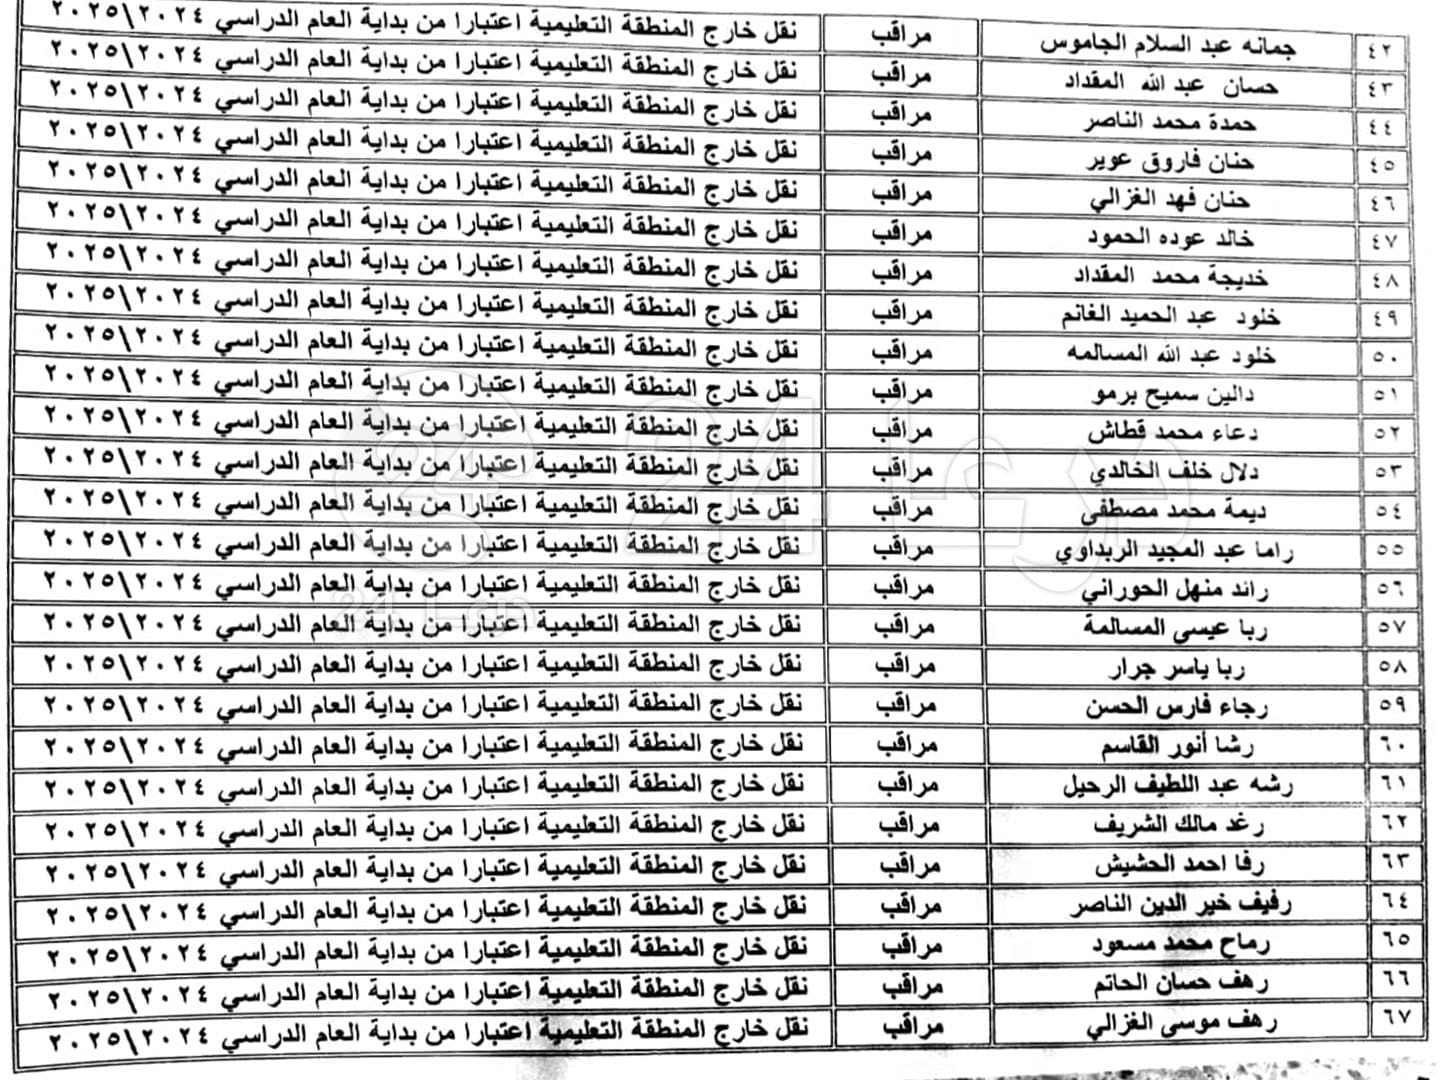 ٤٢ جمانه عبد السلام الجاموس مراقب نقل خارج المنطقة التعليمية اعتبارا من بداية العام الدراسي ٢٠٢٤\٢٠٢٥
٤٣ حسان عبد الله المقداد مراقب نقل خارج المنطقة التعليمية اعتبارا من بداية العام الدراسي ٢٠٢٤\٢٠٢٥
٤٤ حمدة محمد الناصر مراقب نقل خارج المنطقة التعليمية اعتبارا من بداية العام الدراسي ٢٠٢٤\٢٠٢٥
٤٥ حنان فاروق عوير مراقب نقل خارج المنطقة التعليمية اعتبارا من بداية العام الدراسي ٢٠٢٤\٢٠٢٥
٤٦ حنان فهد الغزالي مراقب نقل خارج المنطقة التعليمية اعتبارا من بداية العام الدراسي ٢٠٢٤\٢٠٢٥
٤٧ خالد عوده الحمود مراقب نقل خارج المنطقة التعليمية اعتبارا من بداية العام الدراسي ٢٠٢٤\٢٠٢٥
٤٨ خديجة محمد المقداد مراقب نقل خارج المنطقة التعليمية اعتبارا من بداية العام الدراسي ٢٠٢٤\٢٠٢٥
٤٩ خلود عبد الحميد الغانم مراقب نقل خارج المنطقة التعليمية اعتبارا من بداية العام الدراسي ٢٠٢٤\٢٠٢٥
٥٠ خلود عبد الله المسالمه مراقب نقل خارج المنطقة التعليمية اعتبارا من بداية العام الدراسي ٢٠٢٤\٢٠٢٥
٥١ دالين سميح برمو مراقب نقل خارج المنطقة التعليمية اعتبارا من بداية العام الدراسي ٢٠٢٤\٢٠٢٥
٥٢ دعاء محمد قطاش مراقب نقل خارج المنطقة التعليمية اعتبارا من بداية العام الدراسي ٢٠٢٤\٢٠٢٥
٥٣ دلال خلف الخالدي مراقب نقل خارج المنطقة التعليمية اعتبارا من بداية العام الدراسي ٢٠٢٤\٢٠٢٥
٥٤ ديمة محمد مصطفى مراقب نقل خارج المنطقة التعليمية اعتبارا من بداية العام الدراسي ٢٠٢٤\٢٠٢٥
٥٥ راما عبد المجيد الربداوي مراقب نقل خارج المنطقة التعليمية اعتبارا من بداية العام الدراسي ٢٠٢٤\٢٠٢٥
٥٦ رائد منهل الحوراني مراقب نقل خارج المنطقة التعليمية اعتبارا من بداية العام الدراسي ٢٠٢٤\٢٠٢٥
٥٧ ربا عيسى المسالمة مراقب نقل خارج المنطقة التعليمية اعتبارا من بداية العام الدراسي ٢٠٢٤\٢٠٢٥
٥٨ ربا ياسر جرار مراقب نقل خارج المنطقة التعليمية اعتبارا من بداية العام الدراسي ٢٠٢٤\٢٠٢٥
٥٩ رجاء فارس الحسن مراقب نقل خارج المنطقة التعليمية اعتبارا من بداية العام الدراسي ٢٠٢٤\٢٠٢٥
٦٠ رشا أنور القاسم مراقب نقل خارج المنطقة التعليمية اعتبارا من بداية العام الدراسي ٢٠٢٤\٢٠٢٥
٦١ رشه عبد اللطيف الرحيل مراقب نقل خارج المنطقة التعليمية اعتبارا من بداية العام الدراسي ٢٠٢٤\٢٠٢٥
٦٢ رغد مالك الشريف مراقب نقل خارج المنطقة التعليمية اعتبارا من بداية العام الدراسي ٢٠٢٤\٢٠٢٥
٦٣ رفا احمد الحشيش مراقب نقل خارج المنطقة التعليمية اعتبارا من بداية العام الدراسي ٢٠٢٤\٢٠٢٥
٦٤ رفيف خير الدين الناصر مراقب نقل خارج المنطقة التعليمية اعتبارا من بداية العام الدراسي ٢٠٢٤\٢٠٢٥
٦٥ رماح محمد مسعود مراقب نقل خارج المنطقة التعليمية اعتبارا من بداية العام الدراسي ٢٠٢٤\٢٠٢٥
٦٦ رهف حسان الحاتم مراقب نقل خارج المنطقة التعليمية اعتبارا من بداية العام الدراسي ٢٠٢٤\٢٠٢٥
٦٧ رهف موسى الغزالي مراقب نقل خارج المنطقة التعليمية اعتبارا من بداية العام الدراسي ٢٠٢٤\٢٠٢٥
درعا 24
24
درعا 24